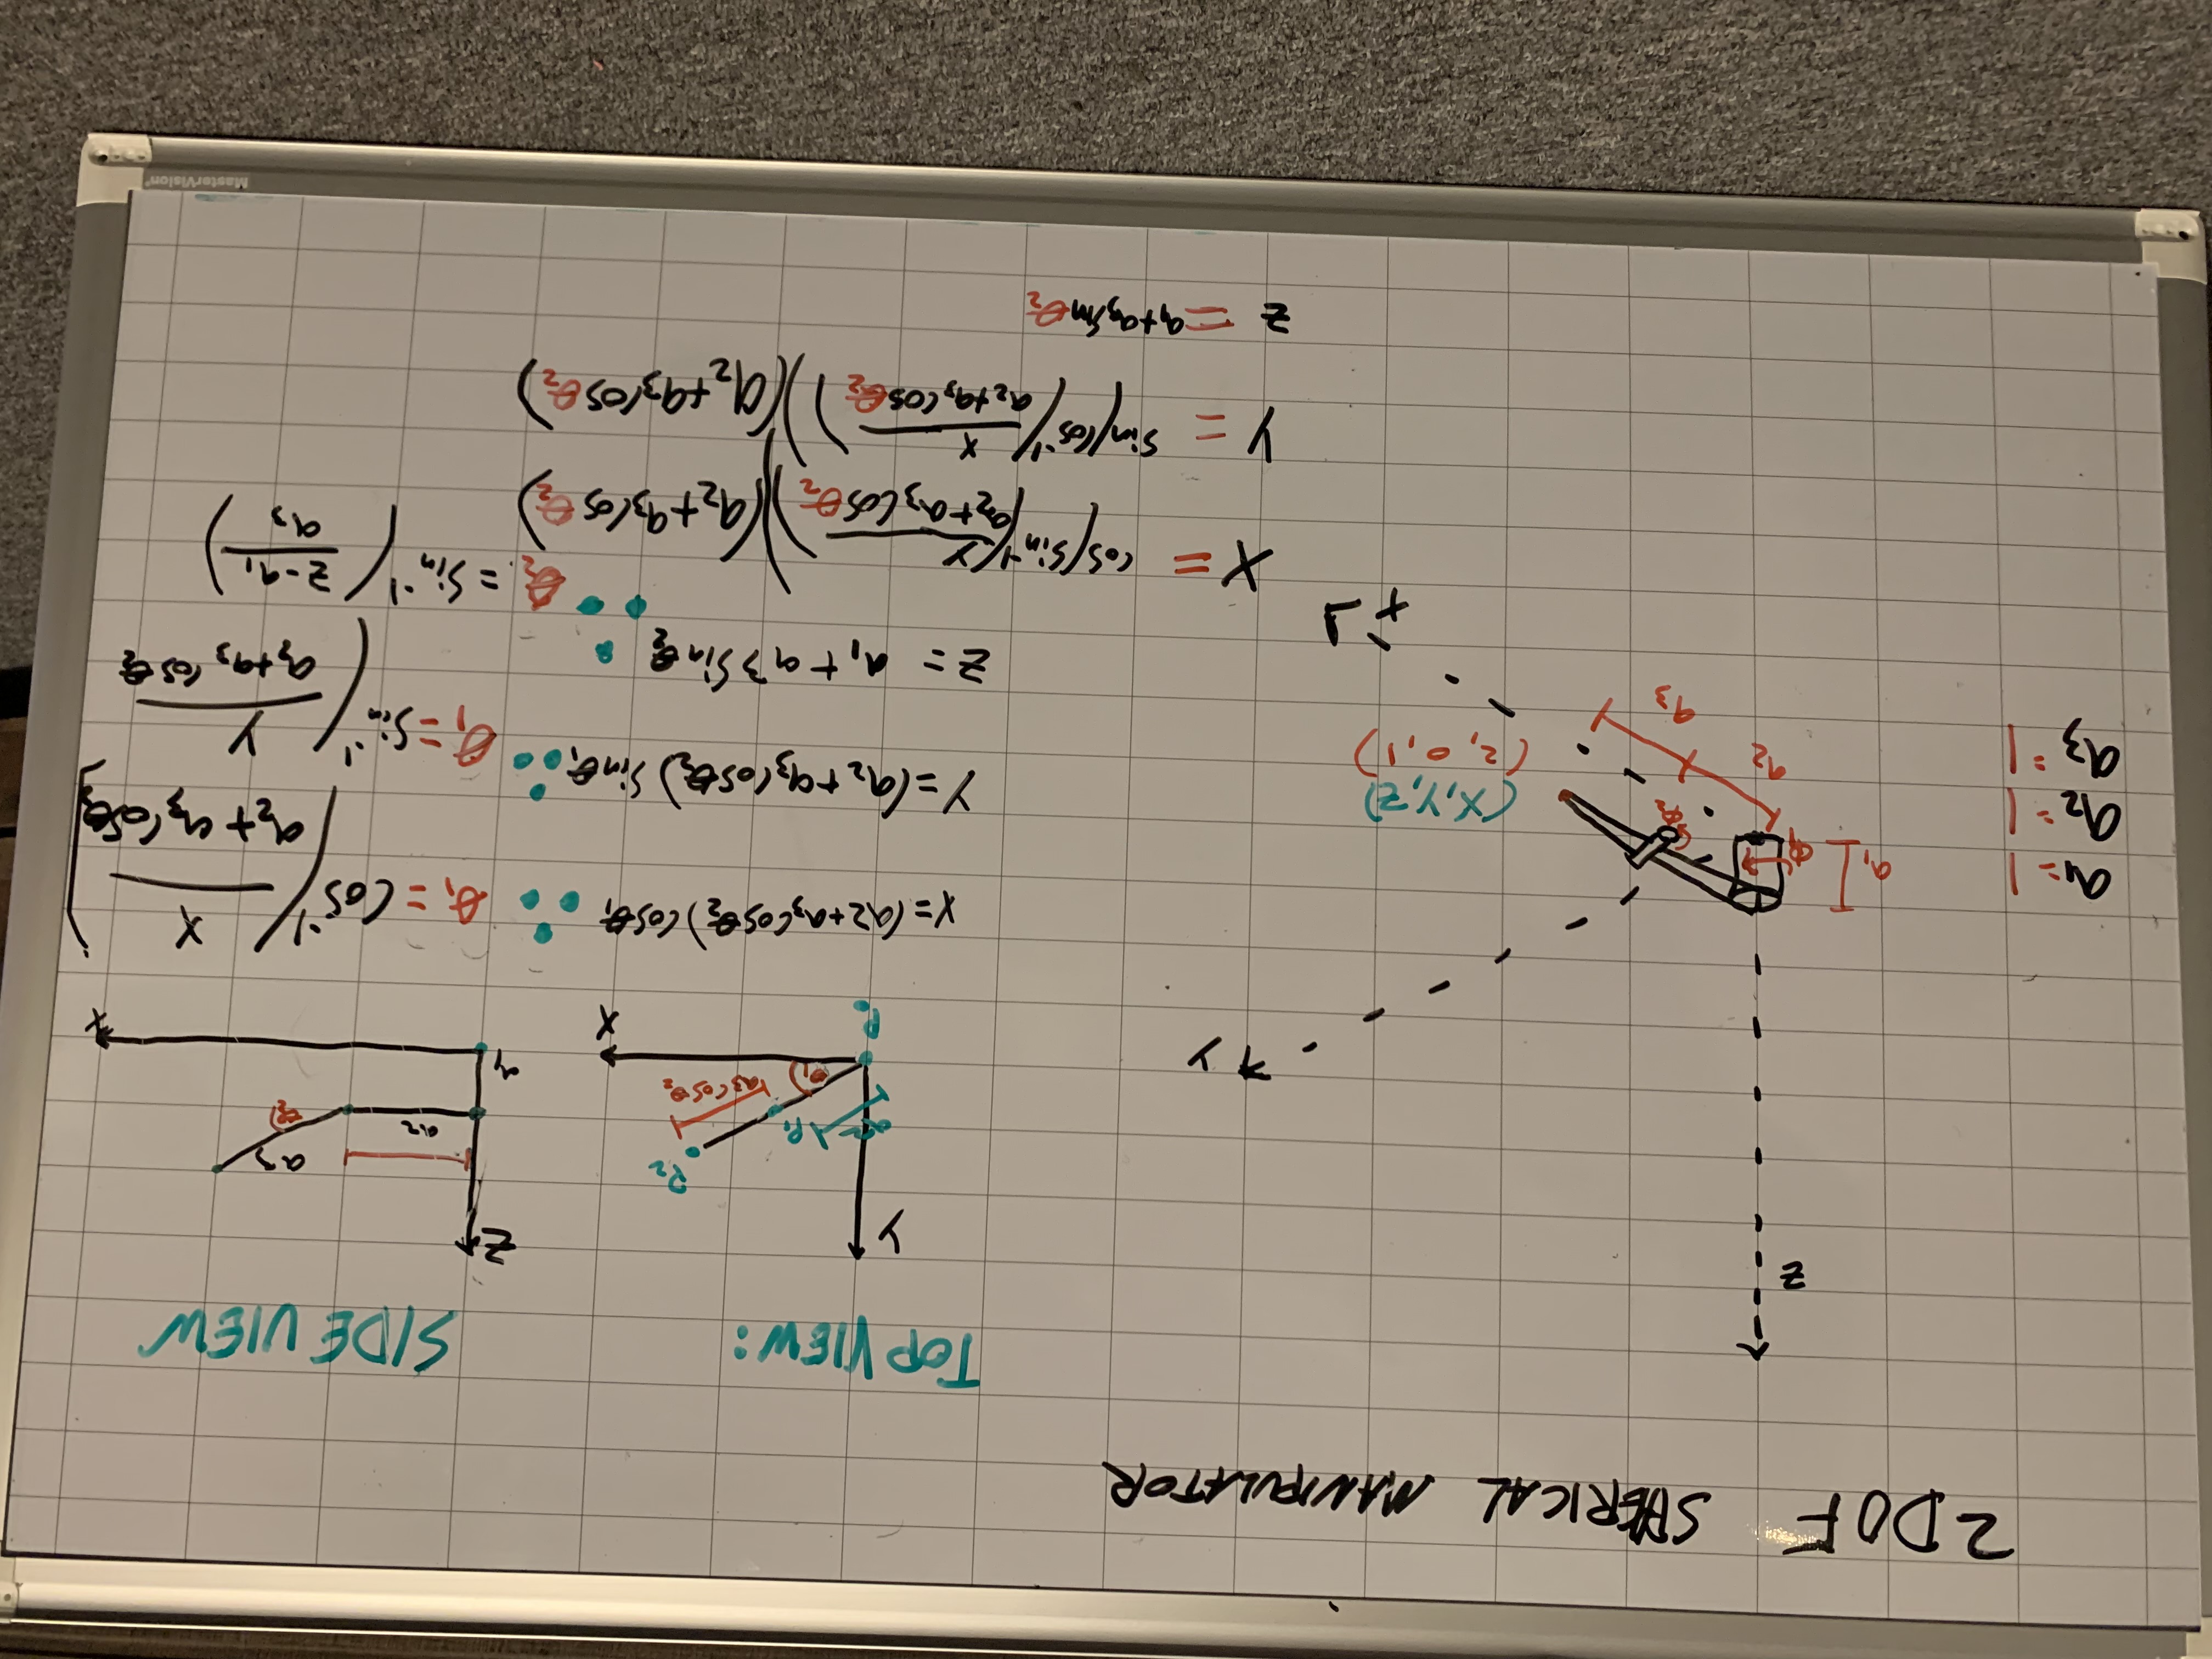 2DOF SPHERICAL MANIPULATOR
TOP VIEW:
SIDE VIEW
z
y
a₁ = 1
a₂ = 1
a₃ = 1
a₁
θ₁
θ₂
a₂
a₃
(X,Y,Z)
(2, 0, 1)
+
Y
P₂
P₁
a2
θ₁
a₃ cosθ₂
X
P₀
Z
a3
a2
θ₂
a₁
X
X = (a2+a₃cosθ₂) cosθ₁ ∴ θ₁ = cos⁻¹(X / (a₂ + a₃ cosθ₂))
Y = (a₂+a₃cosθ₂) sinθ₁ ∴ θ₁ = sin⁻¹(Y / (a₂+a₃ cosθ₂
z = a₁ + a3 sinθ₂ ∴ θ₂ = sin⁻¹((z-a₁) / a₃)
X = cos(sin⁻¹(Y / (a₂+a₃cosθ₂)))(a₂+a₃cosθ₂)
Y = sin(cos⁻¹(X / (a₂+a₃cosθ₂)))(a₂+a₃cosθ₂)
z = a₁+a₃sinθ₂
MasterVision®